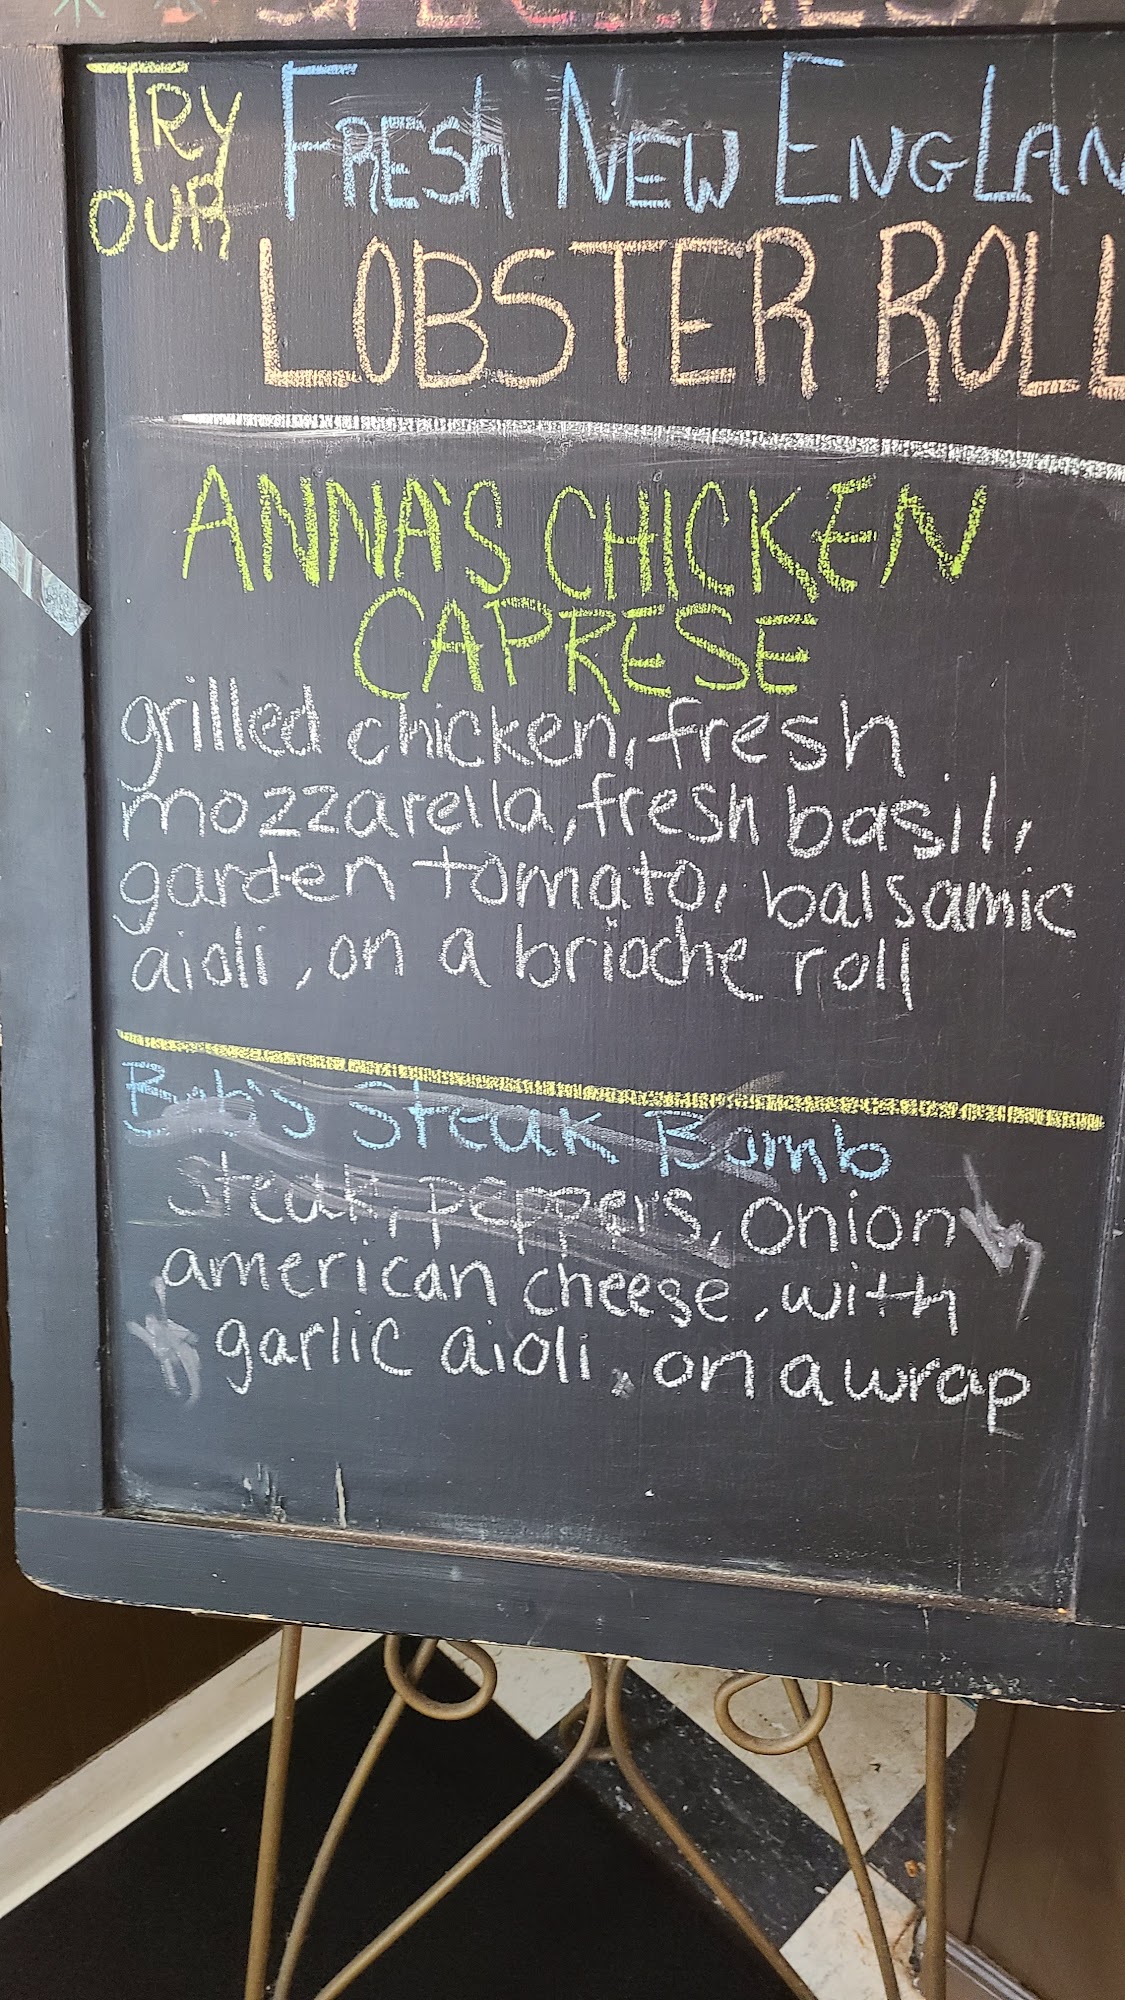 SPECIALS
TRY OUR
FRESH NEW ENGLAN
LOBSTER ROLL
ANNA'S CHICKEN
CAPRESE
grilled chicken, fresh
mozzarella, fresh basil,
garden tomato, balsamic
aioli, on a brioche roll
Bob's Steak Bomb
steak, peppers, onion
american cheese, with
garlic aioli, on a wrap